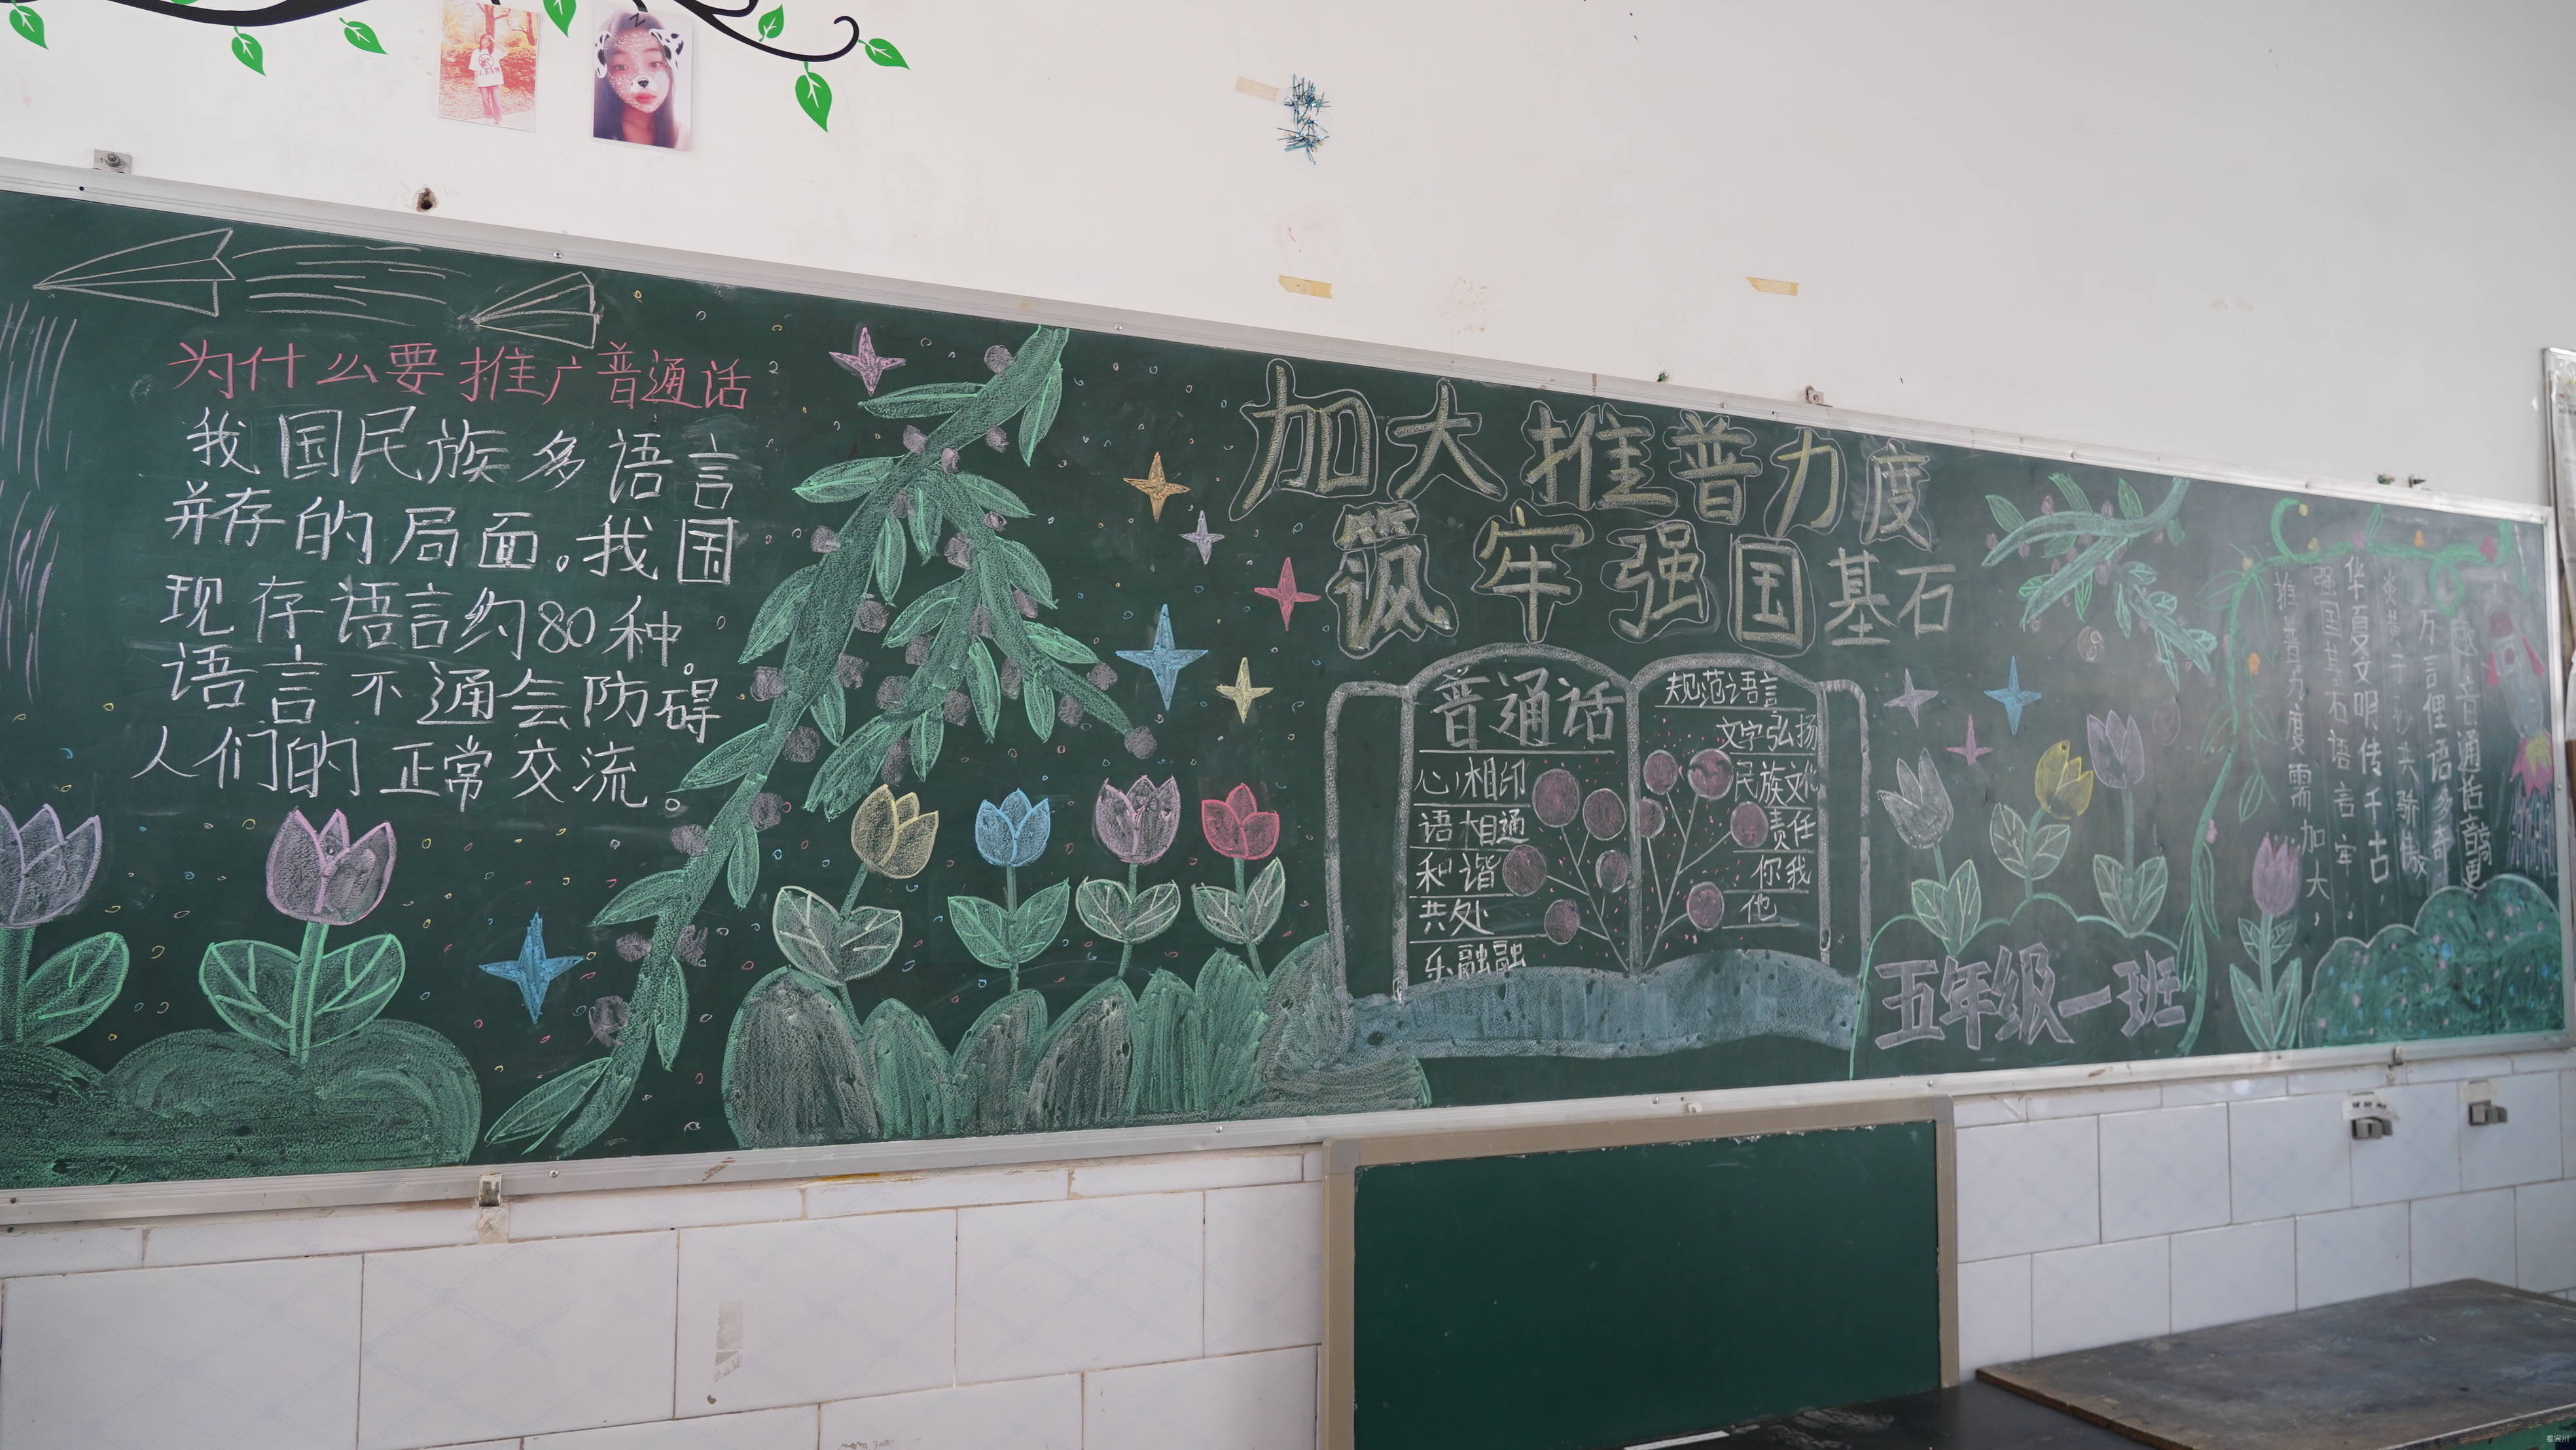 为什么要推广普通话
我国民族多语言
并存的局面。我国
现存语言约80种。
语言不通会防碍
人们的正常交流。
加大推普力度
筑牢强国基石
普通话
心相印
语相通
和谐
共处
乐融融
规范语言
文字弘扬
民族文化
责任
你我
他
五年级一班
万言俚语多奇
华夏文明传千古
强国基石语言牢
推普力度需加大,